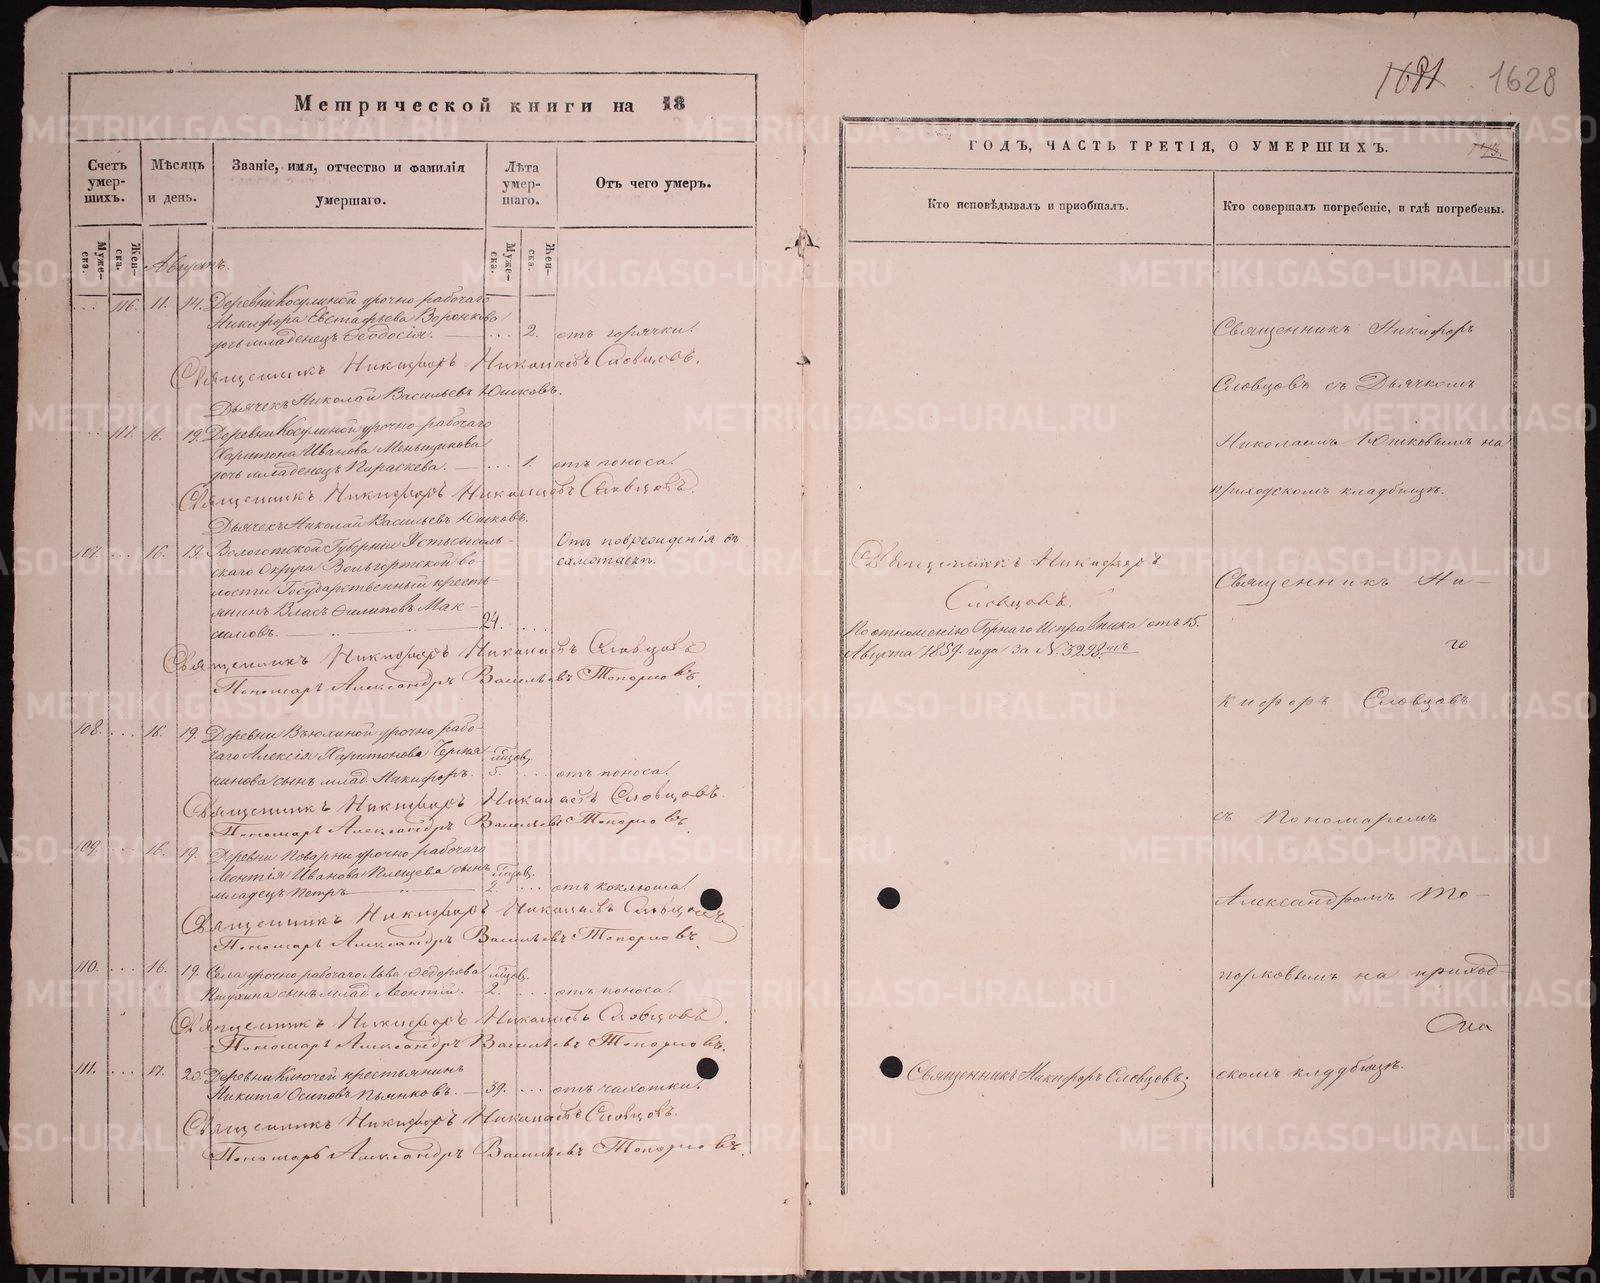 Метрической книги на 18
Счетъ умер-шихъ.
Мѣсяцъ и день.
Званіе, имя, отчество и фамилія умершаго.
Лѣта умер-шаго.
Отъ чего умеръ.
Муже-ска.
Жен-ска.
Муже-ска.
Жен-ска.
Августъ.
... 116. 11. 14. Деревни Косулиной урочно-рабочаго
Никифора Евстафьева Воронкова
дочь младенецъ Феодосія. ... 2. отъ горячки.
Священникъ Никифоръ Николаевъ Словцовъ.
Дьячекъ Николай Васильевъ Юшковъ.
... 117. 16. 19. Деревни Косулиной урочно-рабочаго
Харитона Иванова Меньщикова
дочь младенецъ Параскева. ... 1. отъ поноса.
Священникъ Никифоръ Николаевъ Словцовъ.
Дьячекъ Николай Васильевъ Юшковъ.
107. ... 16. 19. Вологотской Губерніи Устьсысоль-
скаго Округа Вольгортской во-
лости Государственный кресть-
янинъ Власъ Филиповъ Мак-
симовъ. 24. ...
Отъ поврежденія въ
Священникъ Никифоръ Николаевъ Словцовъ
Пономарь Александръ Васильевъ Топорковъ.
108. ... 16. 19. Деревни Вьюхиной урочно рабо-
чаго Алексія Харитонова
сынъ млад. Никифоръ. мѣсцов. 5. ... отъ поноса.
Священникъ Никифоръ Николаевъ Словцовъ.
Пономарь Александръ Васильевъ Топорковъ.
109. ... 16. 19. Деревни Поварни урочно рабочаго
Леонтія Иванова Плещева сынъ
младецъ Петръ 2. ... отъ коклюша.
Священникъ Никифоръ Николаевъ Словцовъ
Пономарь Александръ Васильевъ Топорковъ.
110. ... 16. 19. Села урочно рабочаго Льва Федорова
Пѣтухина сынъ млад. Леонтій. 2. ... отъ поноса.
Священникъ Никифоръ Николаевъ Словцовъ.
Пономарь Александръ Васильевъ Топорковъ.
111. ... 17. 20. Деревни Ключей крестьянинъ
Никита Осиповъ Пьянковъ. 39. ... отъ чахотки.
Священникъ Никифоръ Николаевъ Словцовъ.
Пономарь Александръ Васильевъ Топорковъ.
1628
ГОДЪ, ЧАСТЬ ТРЕТІЯ, О УМЕРШИХЪ.
Кто исповѣдывалъ и пріобщалъ.
Кто совершалъ погребеніе, и гдѣ погребены.
Священникъ Никифоръ
Словцовъ.
По отношенію Горнаго Исправника отъ 15.
Августа 1859. года за № 3298.
Священникъ Никифоръ Словцовъ;
Священникъ Никифоръ
Словцовъ съ Дьячкомъ
Николаемъ Юшковымъ на
приходскомъ кладбищѣ.
Священникъ Ни-
кифоръ Словцовъ
съ Пономаремъ
Александромъ То-
порковымъ на приход-
скомъ кладбищѣ.
METRIKI.GASO-URAL.RU